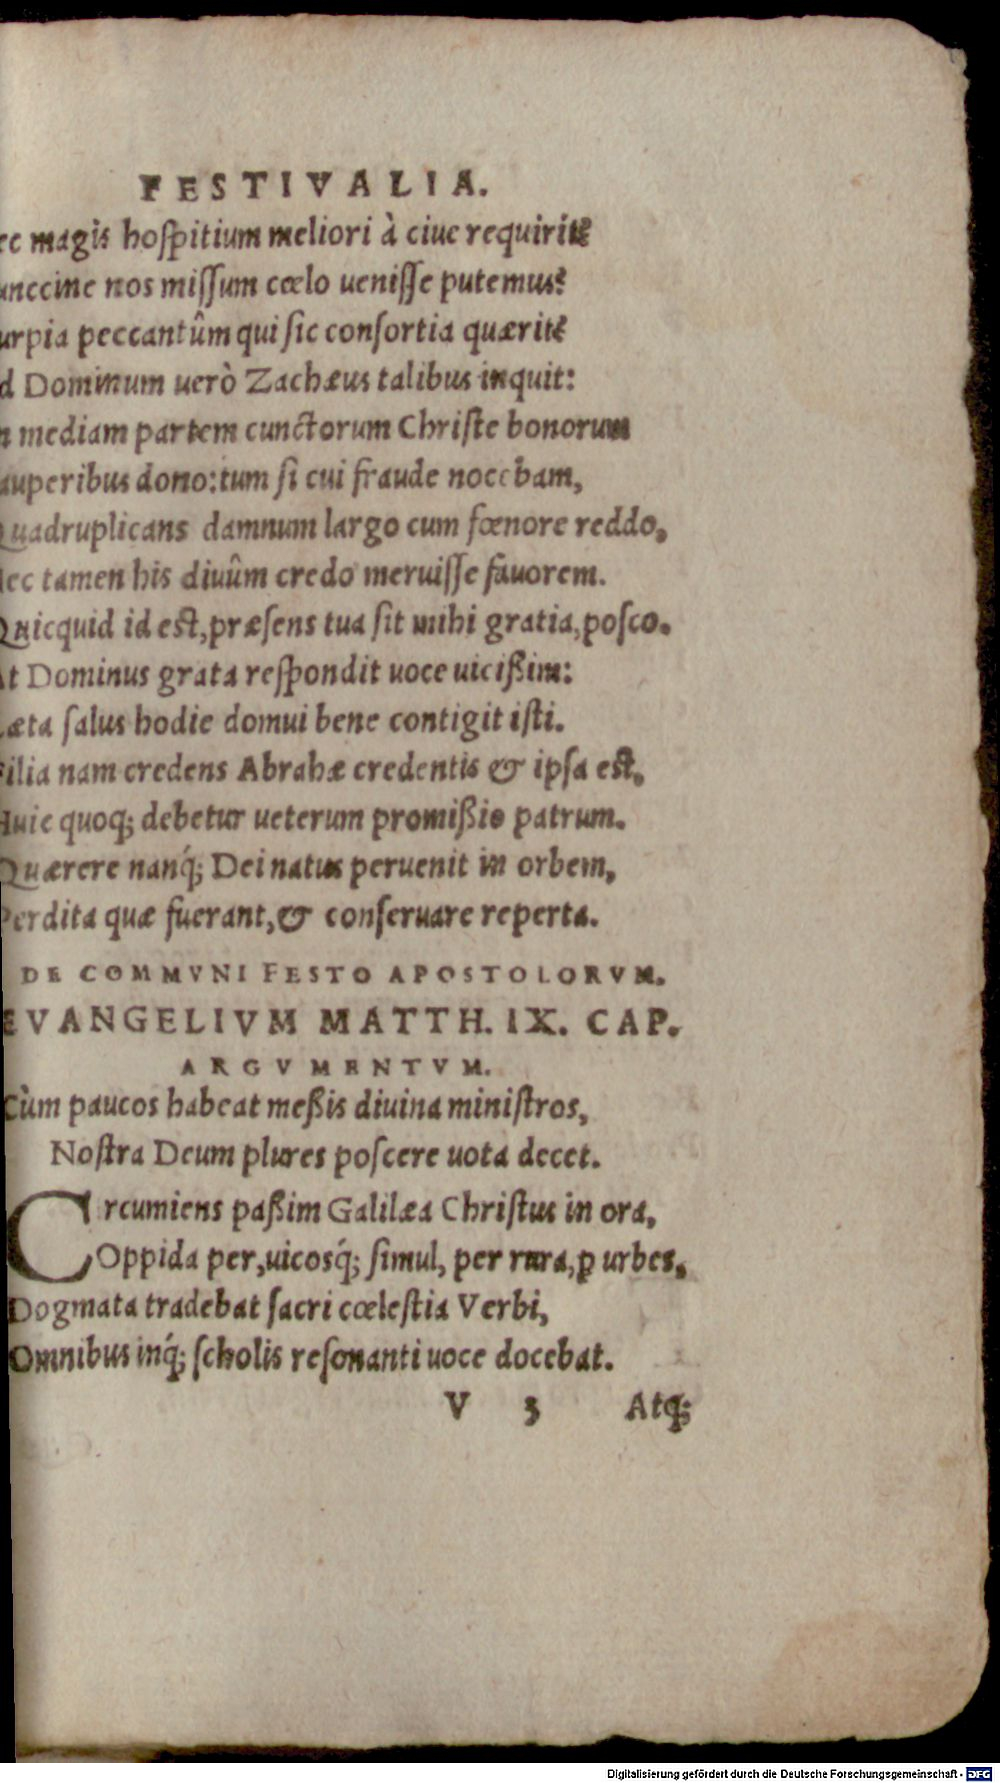 FESTIVALIA.
magis hospitium meliori à ciue requirit?
nos missum cœlo uenisse putemus?
peccantûm qui sic consortia quærit?
Dominum uerò Zachæus talibus inquit:
mediam partem cunctorum Christe bonorum
auperibus dono: tum si cui fraude nocebam,
Quadruplicans damnum largo cum fœnore reddo,
ec tamen his diuûm credo meruisse fauorem.
Quicquid id est, præsens tua sit mihi gratia, posco.
At Dominus grata respondit uoce uicißim:
æta salus hodie domui bene contigit isti.
Filia nam credens Abrahæ credentis & ipsa est,
Huic quoq; debetur ueterum promißio patrum.
Quærere nanq́; Dei natus peruenit in orbem,
Perdita quæ fuerant, & conseruare reperta.
DE COMMVNI FESTO APOSTOLORVM.
EVANGELIVM MATTH. IX. CAP.
ARGVMENTVM.
Cùm paucos habeat meßis diuina ministros,
Nostra Deum plures poscere uota decet.
Circumiens paßim Galilæa Christus in ora,
Oppida per, uicosq́; simul, per rura, ꝑ urbes,
Dogmata tradebat sacri cœlestia Verbi,
Omnibus inq́; scholis resonanti uoce docebat.
V 3 Atq;
Digitalisierung gefördert durch die Deutsche Forschungsgemeinschaft - DFG